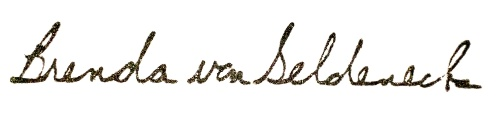 Brenda van Geldeneck